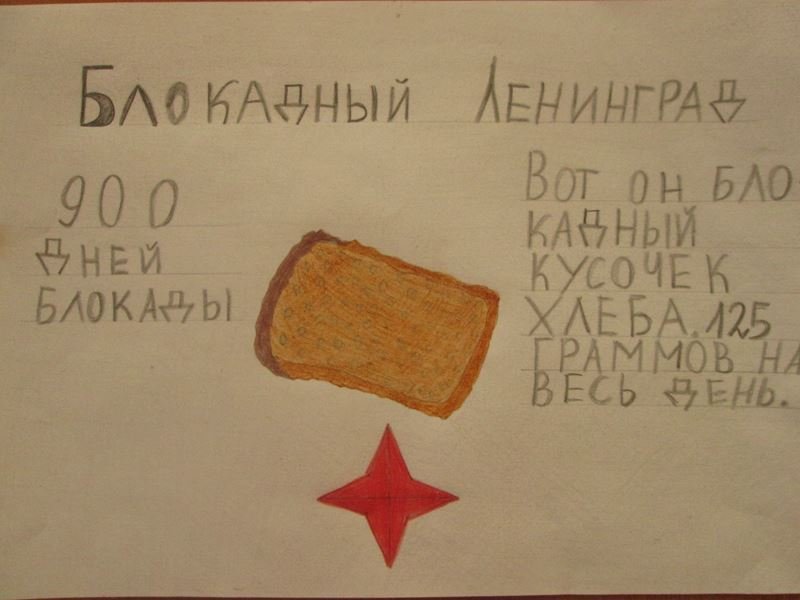 Блокадный Ленинград
900
дней
блокады
Вот он бло
кадный
кусочек
хлеба. 125
граммов на
весь день.